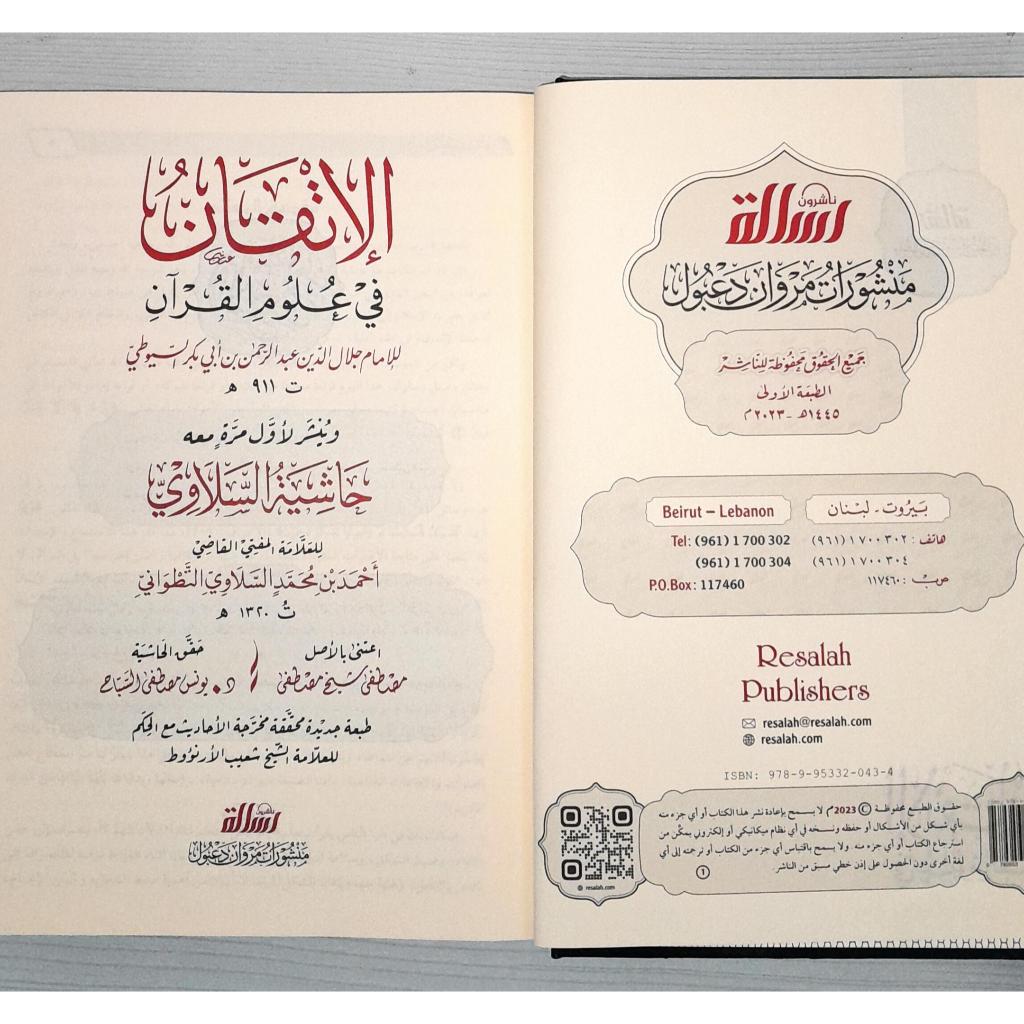 ناشرون
رسالة
منشورات مروان دعبول
جميع الحقوق محفوظة للناشر
الطبعة الأولى
١٤٤٥هـ - ٢٠٢٣م
بيروت - لبنان
Beirut – Lebanon
هاتف : ٧٠٠٣٠٢ ١ (٩٦١)
Tel: (961) 1 700 302
٧٠٠٣٠٤ ١ (٩٦١)
(961) 1 700 304
ص ب : ١١٧٤٦٠
P.O.Box: 117460
Resalah
Publishers
resalah@resalah.com
resalah.com
ISBN: 978-9-95332-043-4
حقوق الطبع محفوظة © 2023م لا يسمح بإعادة نشر هذا الكتاب أو أي جزء منه
بأي شكل من الأشكال أو حفظه ونسخه في أي نظام ميكانيكي أو إلكتروني يمكّن من
استرجاع الكتاب أو أي جزء منه. ولا يسمح باقتباس أي جزء من الكتاب أو ترجمته إلى أي
لغة أخرى دون الحصول على إذن خطي سبق من الناشر.
١
resalah.com
الإتقان
في علوم القرآن
للإمام جلال الدين عبد الرحمن بن أبي بكر السيوطي
ت ٩١١ هـ
ويُنشر لأوَّل مرَّةٍ معه
حَاشِيَةُ السَّلَاوِيِّ
للعلّامة المفتي القاضي
أحمد بن محمَّد السلاوي التطواني
تُ ١٣٢٠ هـ
اعتنى بالأصل
مصطفى شيخ مصطفى
حقَّق الحاشية
د. يونس مصطفى السباح
طبعة جديدة محققة مخرّجة الأحاديث مع الحكم
للعلّامة الشيخ شعيب الأرنؤوط
ناشرون
رسالة
منشورات مروان دعبول